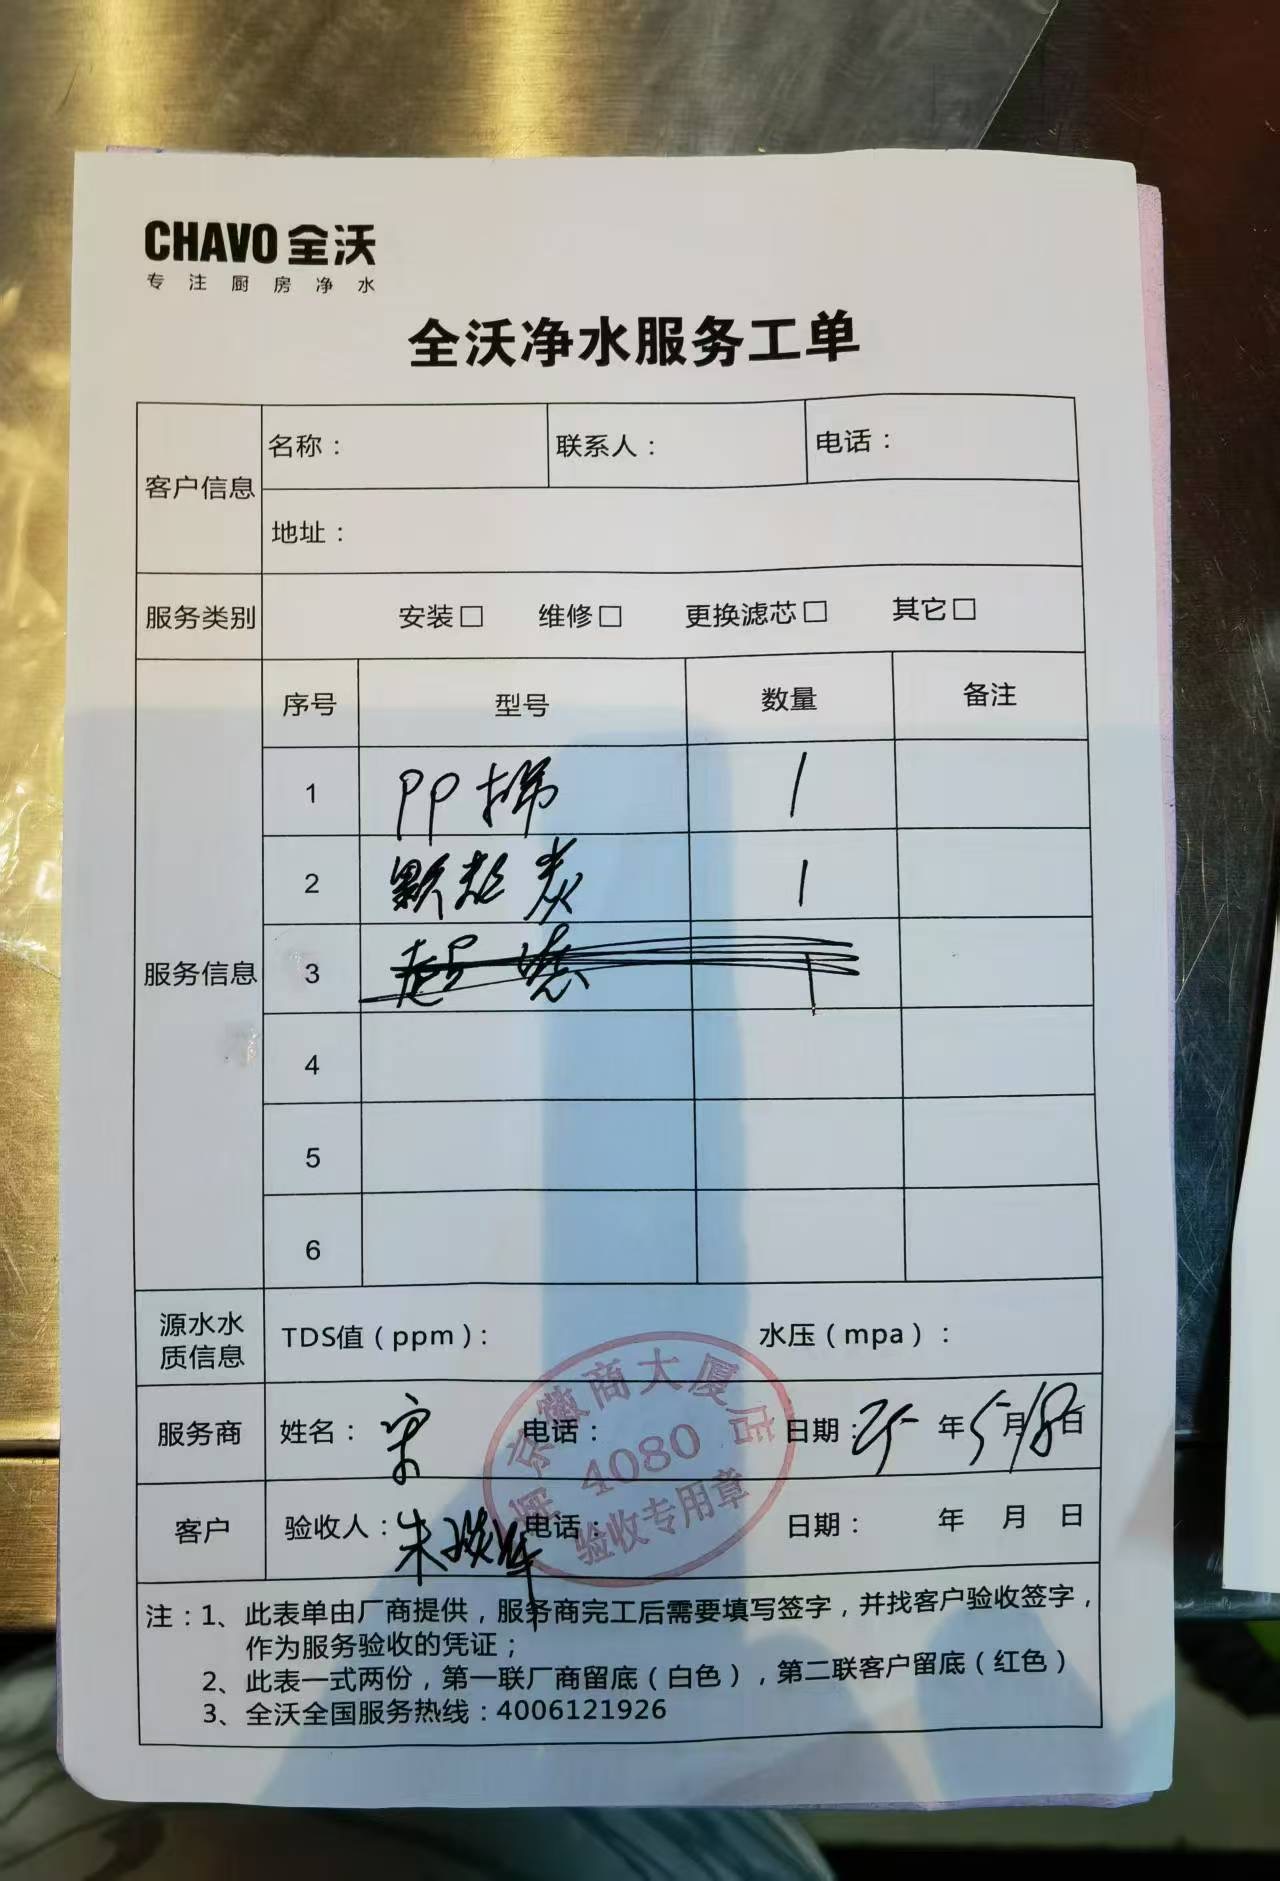 CHAVO 全沃
专注厨房净水
全沃净水服务工单
客户信息 名称： 联系人： 电话：
地址：
服务类别 安装□ 维修□ 更换滤芯□ 其它□
服务信息 序号 型号 数量 备注
1 PP棉 1
2 颗粒炭 1
3 1
4
5
6
源水水质信息 TDS值（ppm）： 水压（mpa）：
服务商 姓名：宋 电话： 日期：25年5月18日
客户 验收人：朱 电话： 日期： 年 月 日
京徽商大厦店
4080
验收专用章
注：1、此表单由厂商提供，服务商完工后需要填写签字，并找客户验收签字，
作为服务验收的凭证；
2、此表一式两份，第一联厂商留底（白色），第二联客户留底（红色）
3、全沃全国服务热线：4006121926